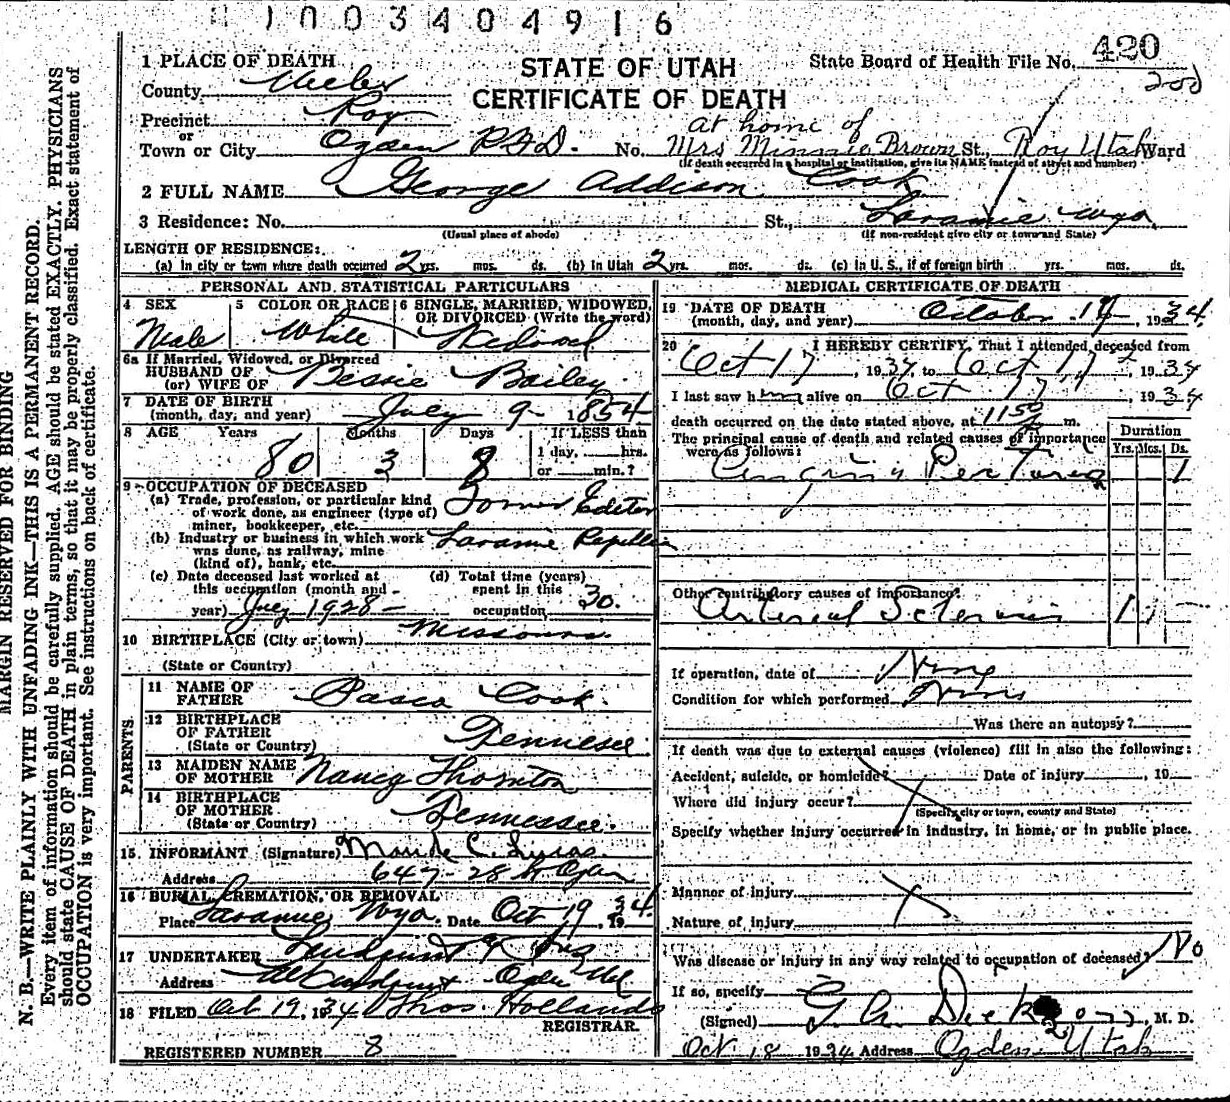 1003404916
420
1 PLACE OF DEATH
STATE OF UTAH
State Board of Health File No.
County Weber
CERTIFICATE OF DEATH
Precinct Roy
or
at home of
Town or City Ogden R.F.D. No. Mrs Minnie Brown St., Roy Utah Ward
(If death occurred in a hospital or institution, give its NAME instead of street and number)
2 FULL NAME George Addison Cook
3 Residence: No. St., Laramie Wyo.
(Usual place of abode) (If non-resident give city or town and State)
LENGTH OF RESIDENCE:
(a) In city or town where death occurred 2 yrs. mos. ds. (b) In Utah 2 yrs. mos. ds. (c) In U. S., if of foreign birth yrs. mos. ds.
PERSONAL AND STATISTICAL PARTICULARS
4 SEX Male
5 COLOR OR RACE White
6 SINGLE, MARRIED, WIDOWED, OR DIVORCED (Write the word) Widowed
6a If Married, Widowed, or Divorced
HUSBAND OF
(or) WIFE OF Bessie Bailey
7 DATE OF BIRTH
(month, day, and year) July 9 - 1854
8 AGE Years Months Days If LESS than
80 3 8 1 day, hrs.
or min.?
9 OCCUPATION OF DECEASED
(a) Trade, profession, or particular kind
of work done, as engineer (type of)
miner, bookkeeper, etc. Former Editor
(b) Industry or business in which work
was done, as railway, mine
(kind of), bank, etc. Laramie
(c) Date deceased last worked at
this occupation (month and
year) July 1928 -
(d) Total time (years)
spent in this
occupation 30.
10 BIRTHPLACE (City or town) Missouri
(State or Country)
PARENTS
11 NAME OF
FATHER Pasco Cook.
12 BIRTHPLACE
OF FATHER
(State or Country) Tennessee
13 MAIDEN NAME
OF MOTHER Nancy Thornton
14 BIRTHPLACE
OF MOTHER
(State or Country) Tennessee.
15. INFORMANT (Signature) Maude C. Lucas.
Address 647 - 28 St Ogden
16 BURIAL, CREMATION, OR REMOVAL
Place Laramie Wyo. Date Oct 19, 1934.
17 UNDERTAKER Lindquist & Sons
Address Ogden Utah
18 FILED Oct 19, 1934 Thos. Hollands
REGISTRAR.
REGISTERED NUMBER 8
MEDICAL CERTIFICATE OF DEATH
19 DATE OF DEATH
(month, day, and year) October 17, 1934.
20 I HEREBY CERTIFY, That I attended deceased from
Oct 17, 1934, to Oct 17, 1934
I last saw him alive on Oct 17, 1934
death occurred on the date stated above, at 11 50 m.
The principal cause of death and related causes of importance
were as follows:
Duration
Yrs. Mos. Ds.
Angina Pectoris 1
Other contributory causes of importance:
Arterial Sclerosis 1
If operation, date of None
Condition for which performed None
Was there an autopsy?
If death was due to external causes (violence) fill in also the following:
Accident, suicide, or homicide? Date of injury , 19
Where did injury occur?
(Specify city or town, county and State)
Specify whether injury occurred in industry, in home, or in public place.
Manner of injury
Nature of injury
Was disease or injury in any way related to occupation of deceased? No
If so, specify
(Signed) G. A. Dickson, M. D.
Oct 18 1934 Address Ogden Utah
MARGIN RESERVED FOR BINDING
N. B.—WRITE PLAINLY WITH UNFADING INK—THIS IS A PERMANENT RECORD.
Every item of information should be carefully supplied. AGE should be stated EXACTLY. PHYSICIANS
should state CAUSE OF DEATH in plain terms, so that it may be properly classified. Exact statement of
OCCUPATION is very important. See instructions on back of certificate.